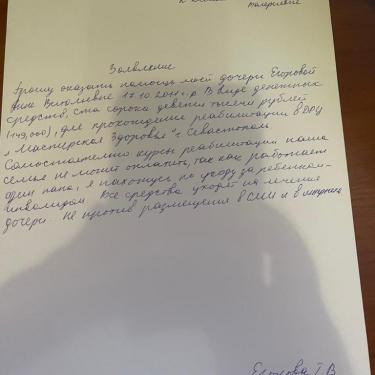 Валерьевне
Заявление
Прошу оказать помощь моей дочери Егоровой
17.10.2011 г.р. В виде денежных
средств, ста сорока девяти тысяч рублей
(149,000), для прохождения реабилитации в
"Мастерская Здоровья" г. Севастополь.
Самостоятельно курсы реабилитации наша
семья не может оплатить, так как работает
один папа, я нахожусь по уходу за ребенком-
инвалидом. Все средства уходят на лечение
дочери. Не против размещения в СМИ и в
Егорова Т.В.